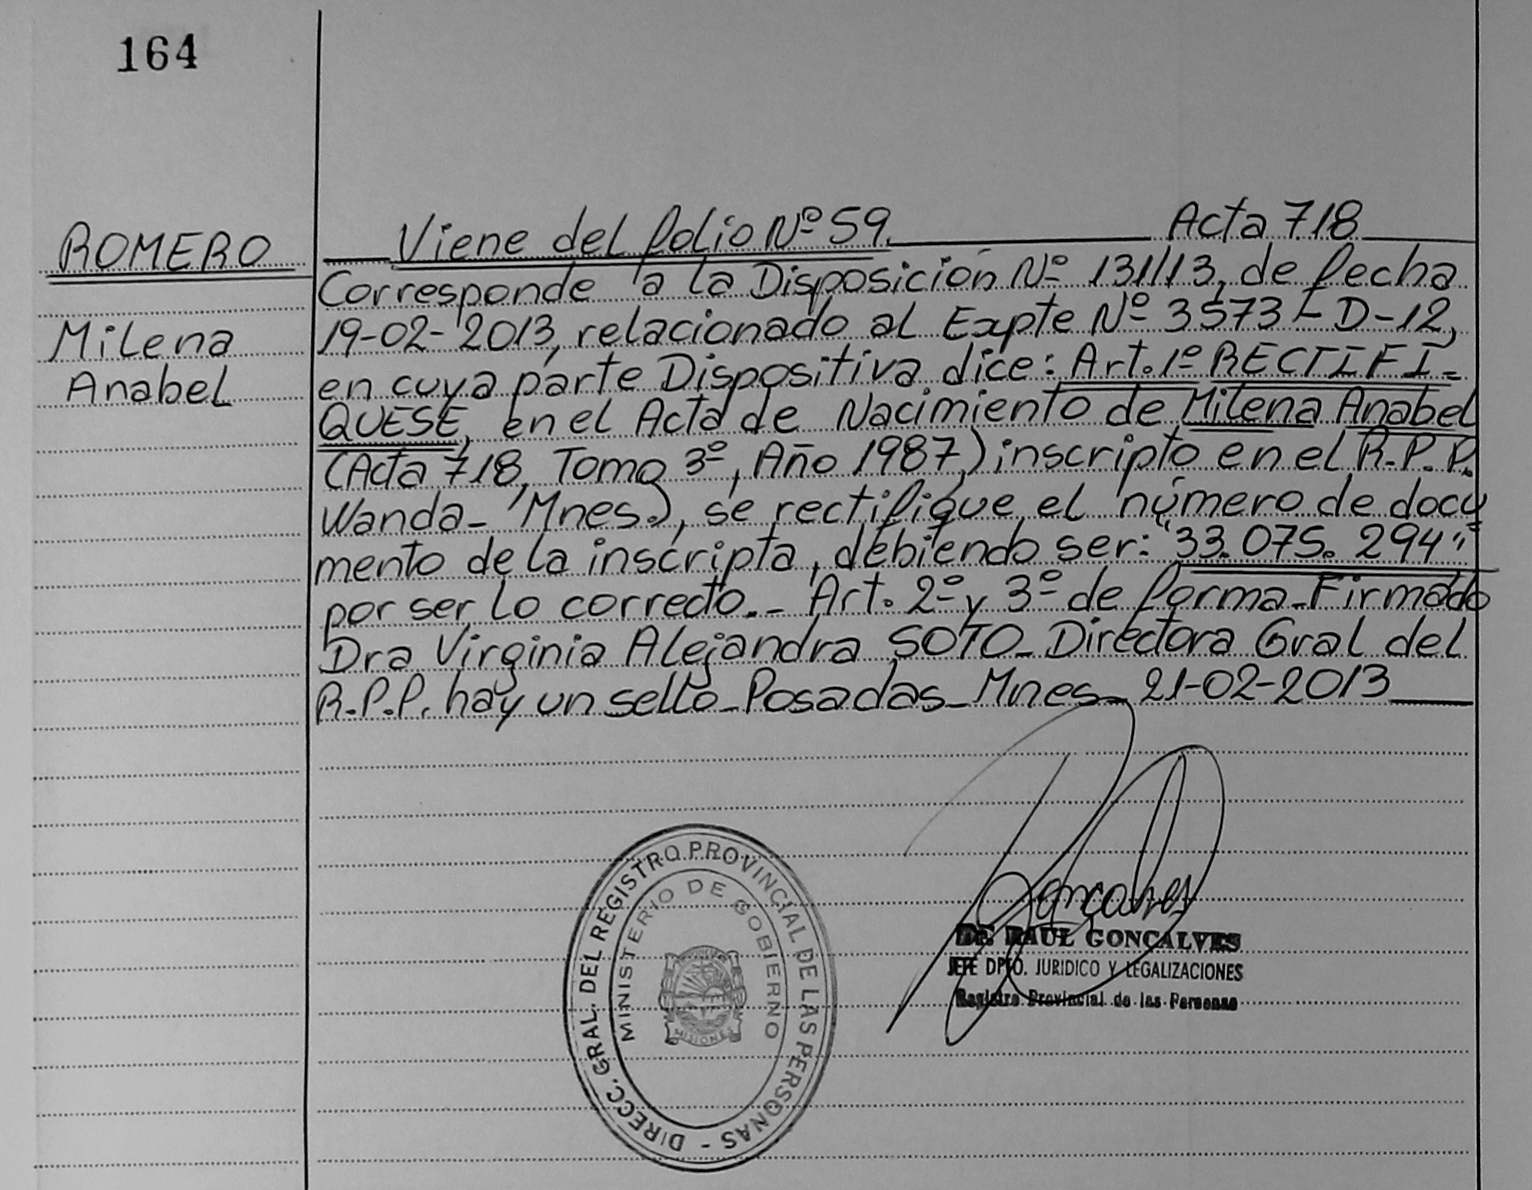 164
ROMERO
Milena
Anabel
Viene del folio Nº 59. Acta 718
Corresponde a la Disposición Nº 131/13, de fecha
19-02-2013, relacionado al Expte Nº 3573-D-12,
en cuya parte Dispositiva dice: Art. 1º RECTIFI-
QUESE, en el Acta de Nacimiento de Milena Anabel
(Acta 718, Tomo 3º, Año 1987) inscripto en el R.P.P.
Wanda- Mnes.), se rectifique el número de docu
mento de la inscripta, debiendo ser: "33.075.294",
por ser lo correcto.- Art. 2º y 3º de forma-Firmado
Dra Virginia Alejandra SOTO-Directora Gral del
R.P.P. hay un sello-Posadas-Mnes- 21-02-2013
DIRECC. GRAL. DEL REGISTRO PROVINCIAL DE LAS PERSONAS -
MINISTERIO DE GOBIERNO
MISIONES
Goncalves
Dr. RAUL GONCALVES
JEFE DPTO. JURIDICO Y LEGALIZACIONES
Registro Provincial de las Personas